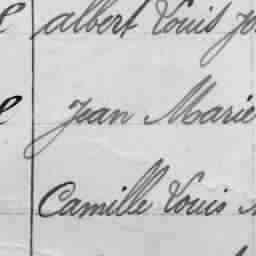 albert Louis
Jean Marie
Camille Louis